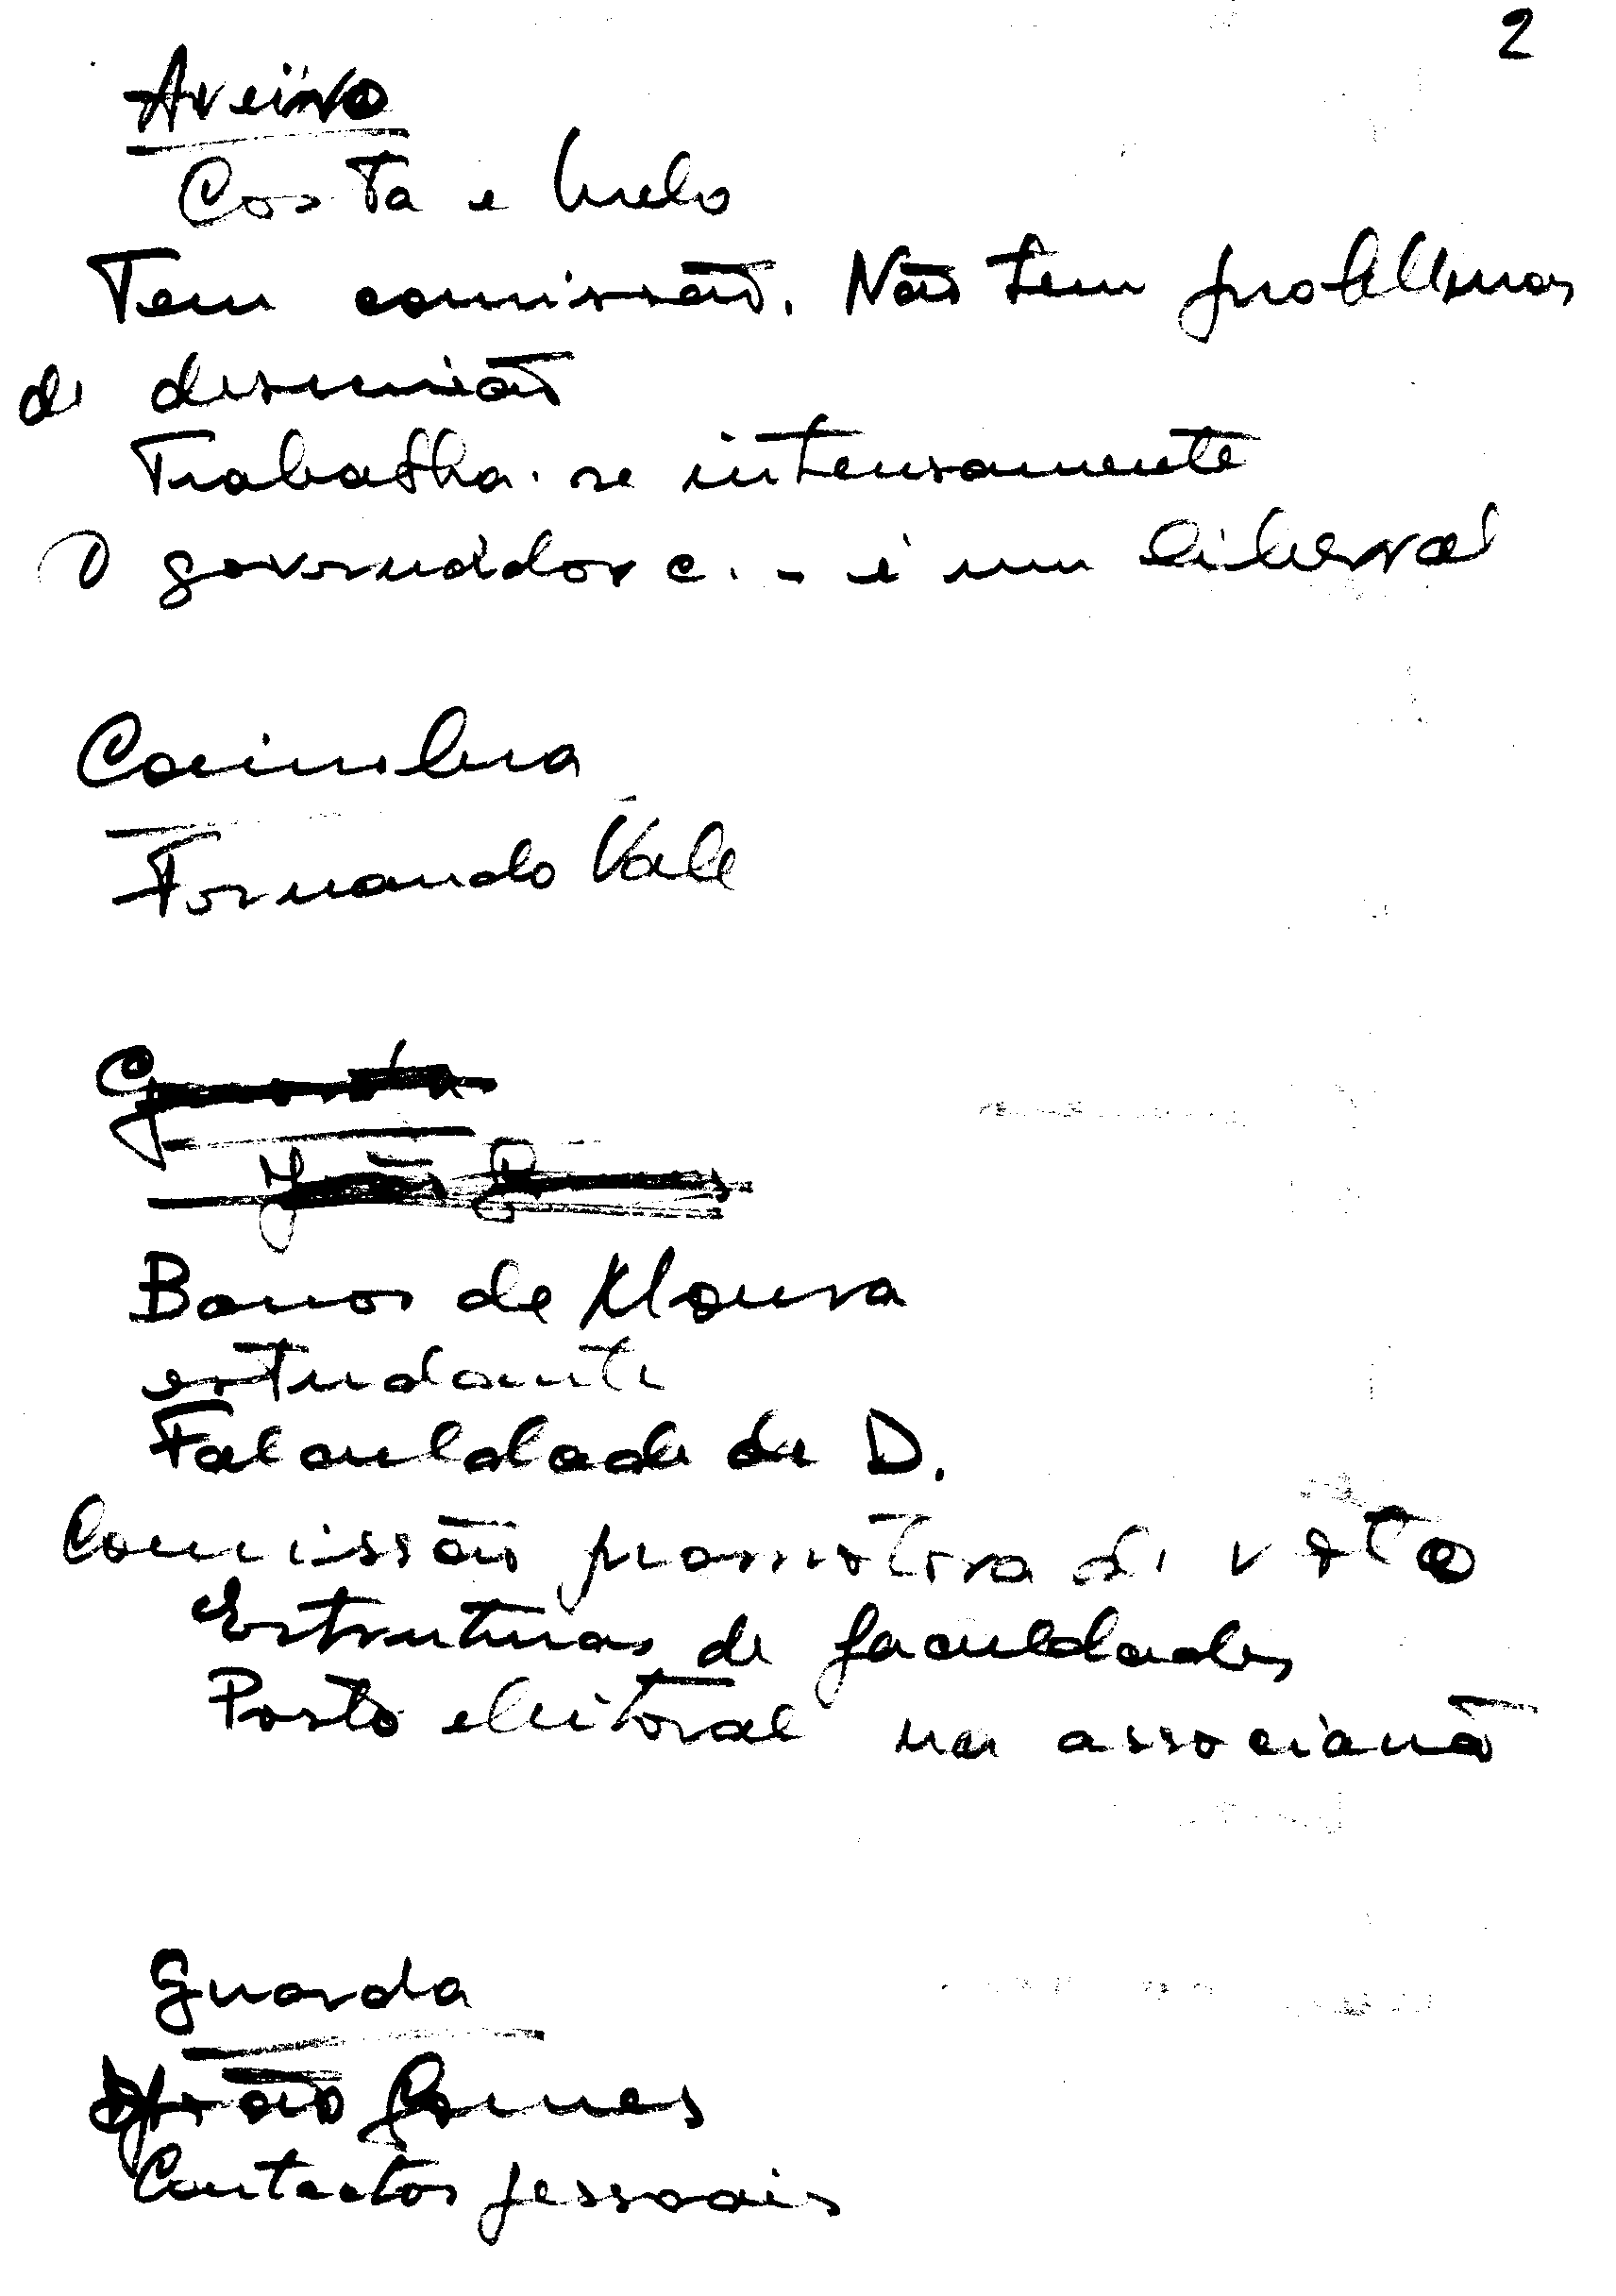 2
Aveiro
Costa e Melo
Tem comissão. Não tem problemas
de desunião
Trabalha-se intensamente
O governador c. - é um liberal
Coimbra
Fernando Vale
Guarda
João Gomes
Barros de Moura
estudante
Faculdade de D.
Comissão promotora de voto
Estruturas de faculdades
Posto eleitoral na associação
Guarda
João Gomes
Contactos pessoais